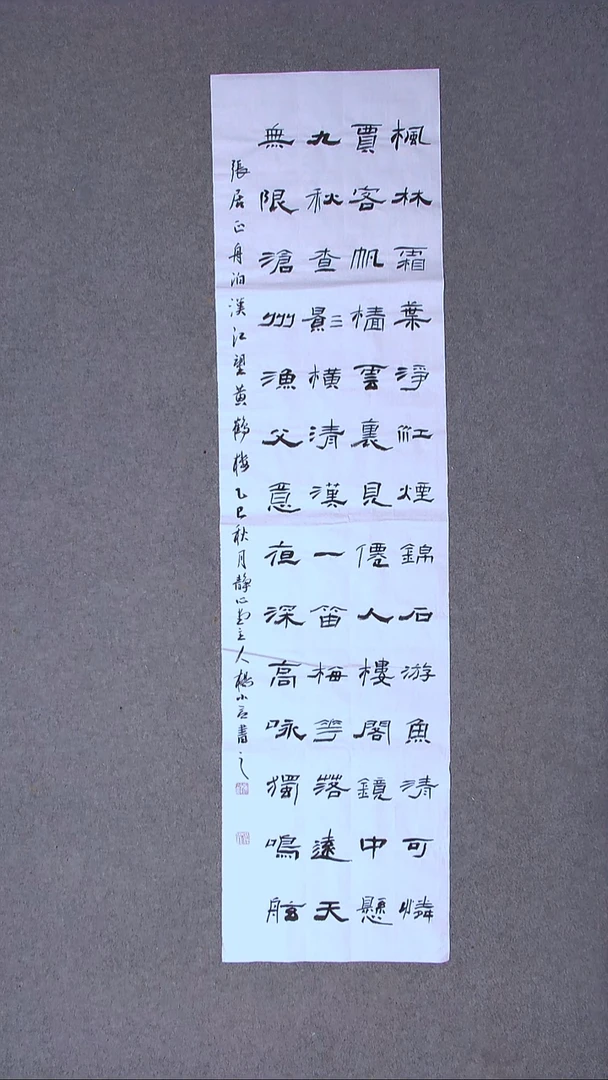 楓林霜葉淨江煙錦石游魚清可憐
賈客帆檣雲裏見僊人樓閣鏡中懸
九秋查影橫清漢一笛梅花落遠天
無限滄州漁父意夜深高咏獨鳴舷
張居正舟泊漢江望黃鶴樓乙巳秋月靜心主人小書之